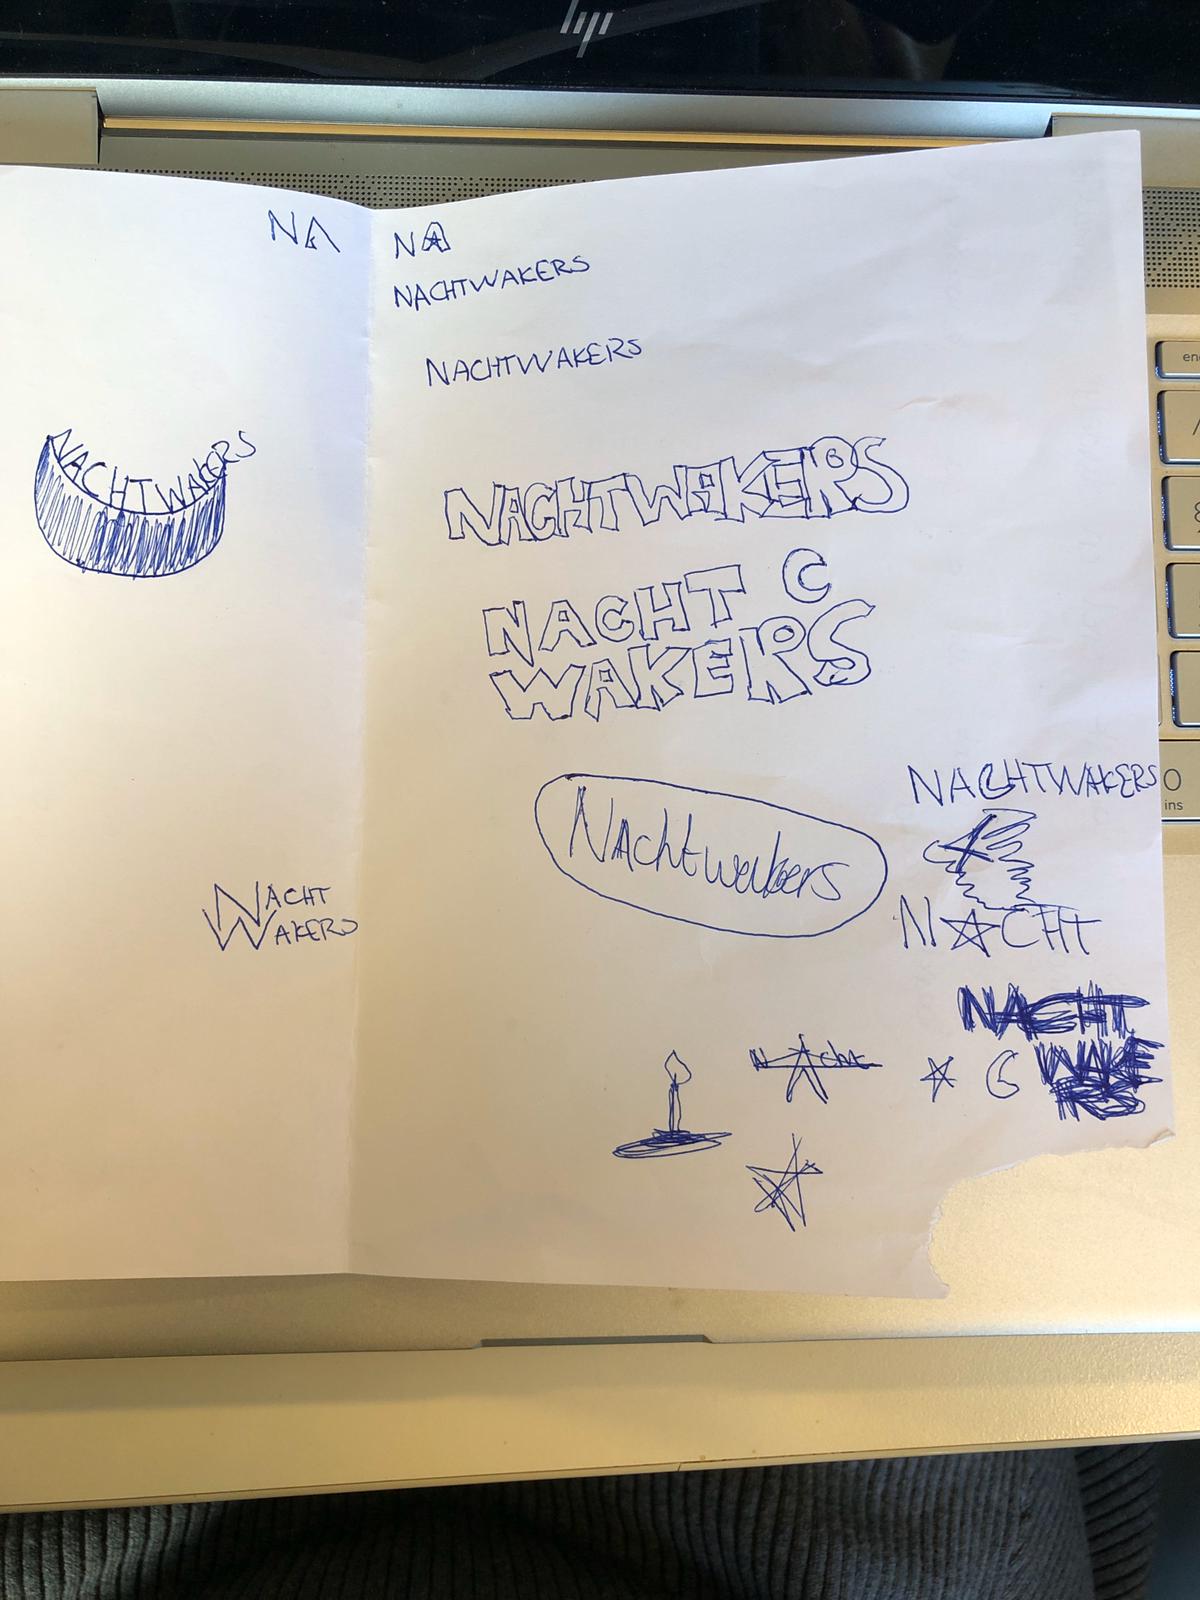 hp
NA
NA
NACHTWAKERS
NACHTWAKERS
NACHTWAKERS
NACHTWAKERS
NACHT
WAKERS
NACHTWAKERS
Nachtwakers
NACHT
WAKERS
NACHT
NACHT
WAKE
RS
NAcht
en
ins